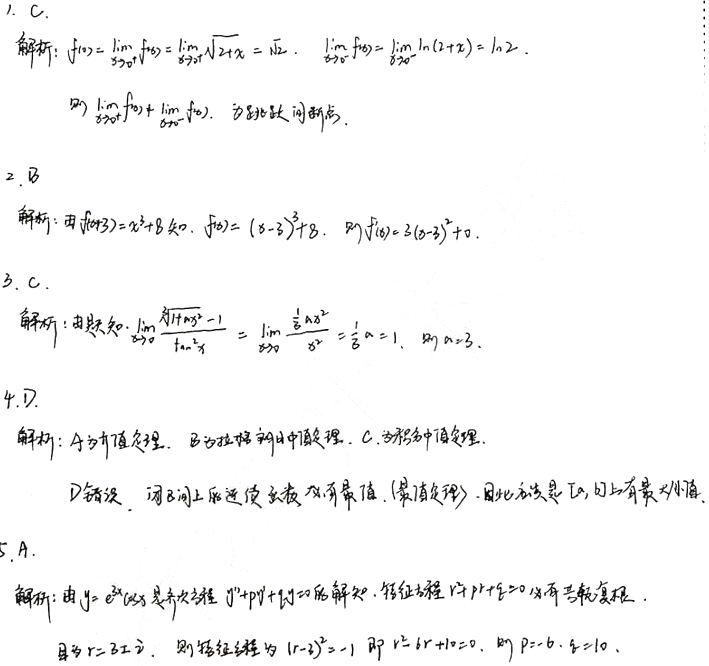 1. C.
解析: f(0) = lim_{x→0⁺} f(x) = lim_{x→0⁺} √(2+x) = √2. lim_{x→0⁻} f(x) = lim_{x→0⁻} ln(2+x) = ln2.
则 lim_{x→0⁺} f(x) ≠ lim_{x→0⁻} f(x). 为跳跃间断点.
2. B
解析: 由 f(x+3) = x³+8 知. f(x) = (x-3)³+8. 则 f'(x) = 3(x-3)²+0.
3. C.
解析: 由题知. lim_{x→0} (∛(1+ax²) - 1)/(tan²x) = lim_{x→0} (⅓ax²)/(x²) = ⅓a = 1. 则 a=3.
4. D.
解析: A为介值定理. B为拉格朗日中值定理. C.为积分中值定理.
D错误. 闭区间上的连续函数必有最值. (最值定理). 因此应该是 [a,b]上有最大小值.
5. A.
解析: 由 y = e^{3x}cosx 是齐次方程 y''+py'+qy=0 的解知. 特征方程 r²+pr+q=0 必有共轭复根.
且为 r=3±i. 则特征方程为 (r-3)²=-1 即 r²-6r+10=0. 则 p=-6. q=10.